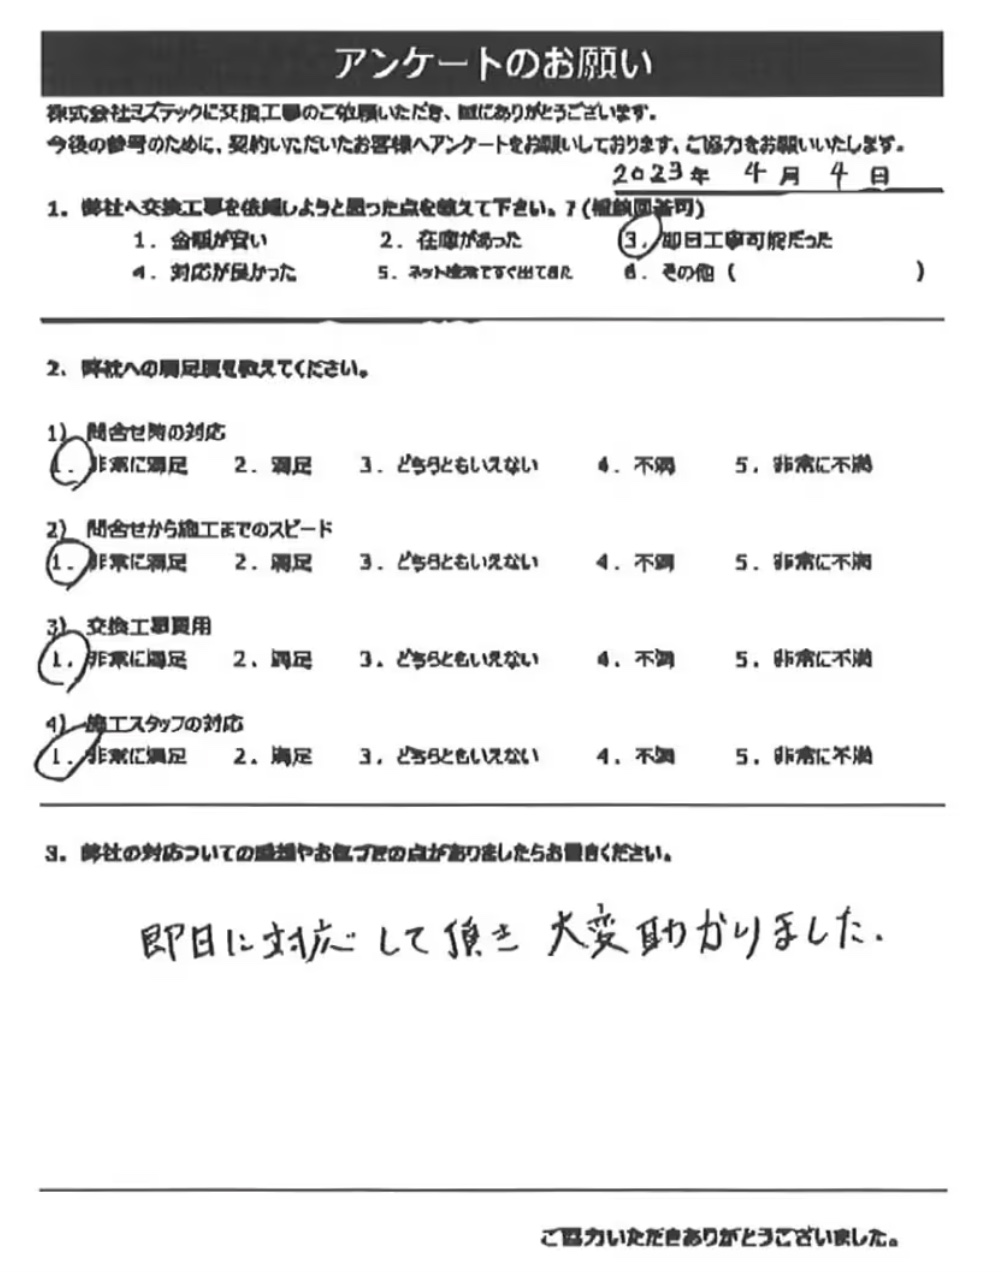 アンケートのお願い
株式会社ミズテックに交換工事のご依頼いただき、誠にありがとうございます。
今後の参考のために、契約いただいたお客様へアンケートをお願いしております、ご協力をお願いいたします。
2023年 4月 4日
1. 弊社へ交換工事を依頼しようと思った点を教えて下さい。?(複数回答可)
1. 金額が安い 2. 在庫があった 3. 即日工事可能だった
4. 対応が良かった 5. ネット検索ですぐ出てきた 6. その他 ( )
2. 弊社への満足度を教えてください。
1) 問合せ時の対応
1. 非常に満足 2. 満足 3. どちらともいえない 4. 不満 5. 非常に不満
2) 問合せから施工までのスピード
1. 非常に満足 2. 満足 3. どちらともいえない 4. 不満 5. 非常に不満
3) 交換工事費用
1. 非常に満足 2. 満足 3. どちらともいえない 4. 不満 5. 非常に不満
4) 施工スタッフの対応
1. 非常に満足 2. 満足 3. どちらともいえない 4. 不満 5. 非常に不満
3. 弊社の対応ついての感想やお気づきの点がありましたらお書きください。
即日に対応して頂き 大変助かりました.
ご協力いただきありがとうございました。